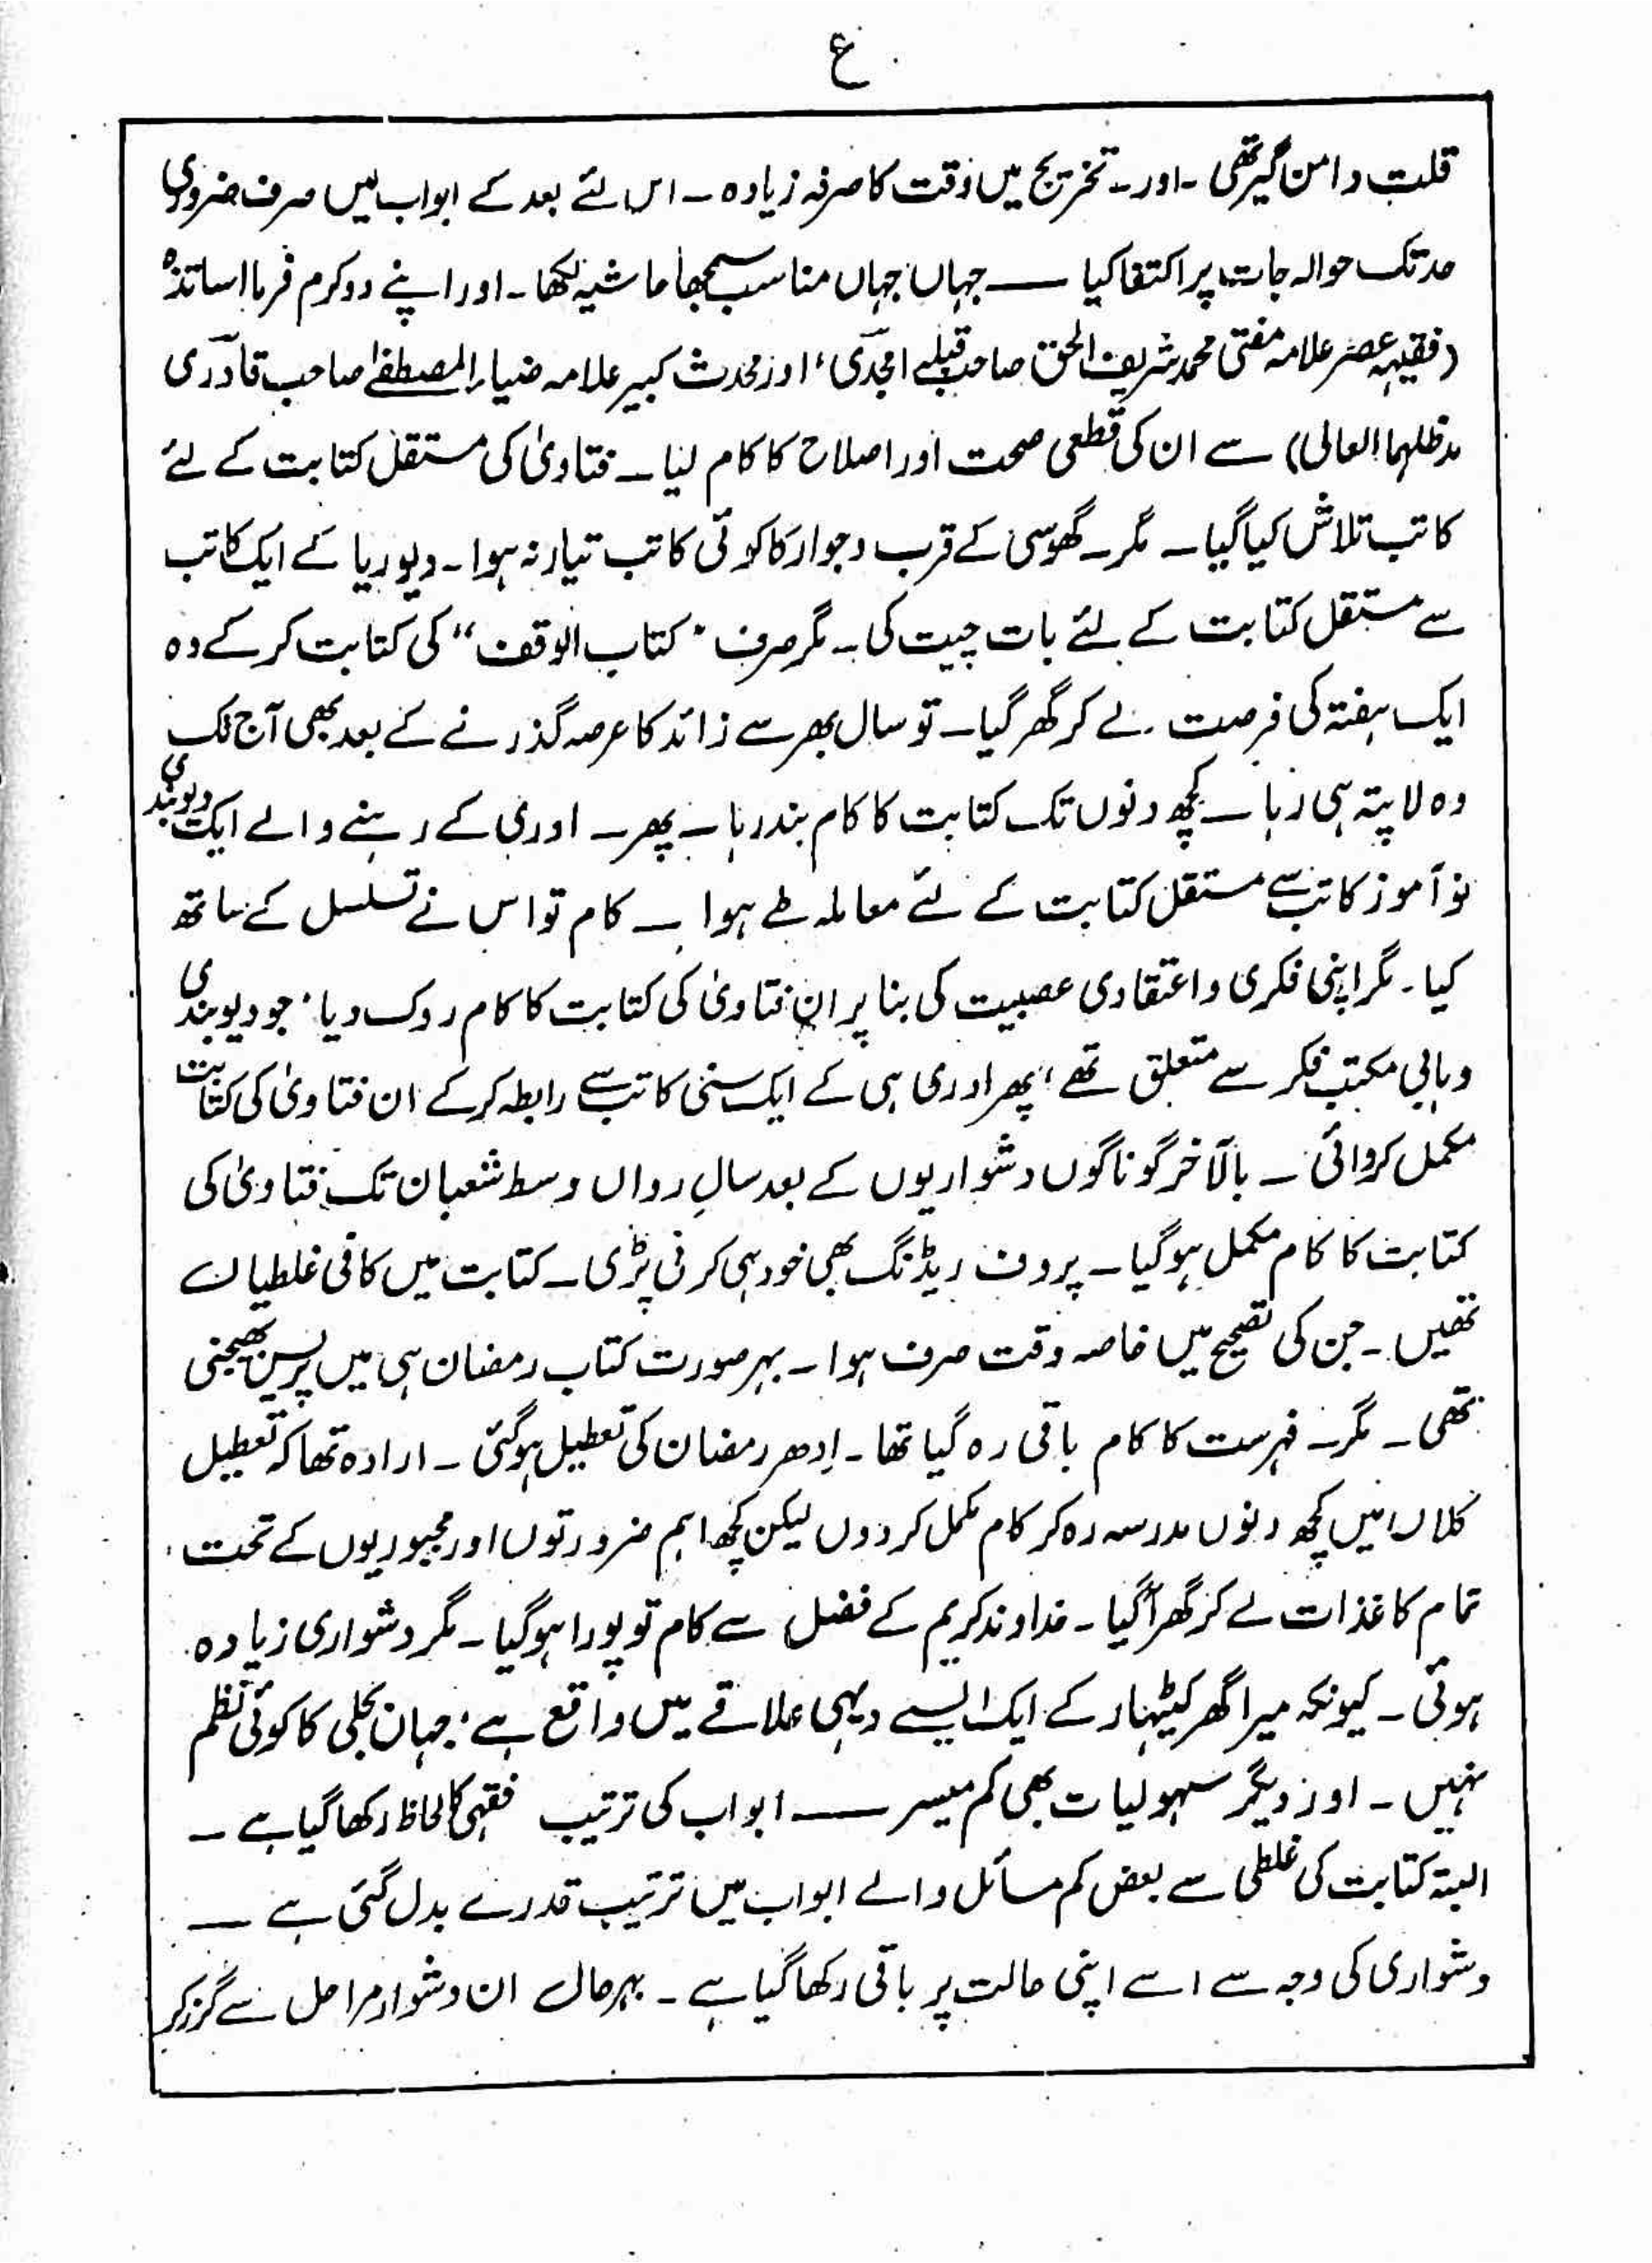 ع
قلت دامن گیر تھی ۔ اور ۔ تخریج میں وقت کا صرفہ زیادہ ۔ اس لئے بعد کے ابواب میں صرف ضروری
حد تک حوالہ جات پر اکتفا کیا ــــ جہاں جہاں مناسب سمجھا حاشیہ لکھا ۔ اور اپنے دو کرم فرما اساتذہ
(فقیہہ عصر علامہ مفتی محمد شریف الحق صاحب قبلہ امجدی، اور محدث کبیر علامہ ضیاء المصطفےٰ صاحب قادری
مدظلہما العالی) سے ان کی قطعی صحت اور اصلاح کا کام لیا ۔ فتاویٰ کی مستقل کتابت کے لئے
کاتب تلاش کیا گیا ۔ مگر ۔ گھوسی کے قرب و جوار کا کوئی کاتب تیار نہ ہوا ۔ دیوریا کے ایک کاتب
سے مستقل کتابت کے لئے بات چیت کی ۔ مگر صرف "کتاب الوقف" کی کتابت کر کے وہ
ایک ہفتہ کی فرصت لے کر گھر گیا ۔ تو سال بھر سے زائد کا عرصہ گذرنے کے بعد بھی آج تک
وہ لاپتہ ہی رہا ۔ کچھ دنوں تک کتابت کا کام بند رہا ۔ پھر ۔ ادری کے رہنے والے ایک دیوبندی
نو آموز کاتب سے مستقل کتابت کے لئے معاملہ طے ہوا ۔ کام تو اس نے تسلسل کے ساتھ
کیا ۔ مگر اپنی فکری و اعتقادی عصبیت کی بنا پر ان فتاویٰ کی کتابت کا کام روک دیا، جو دیوبندی
وہابی مکتب فکر سے متعلق تھے، پھر ادری ہی کے ایک سنی کاتب سے رابطہ کر کے ان فتاویٰ کی کتابت
مکمل کروائی ۔ بالآخر گوناگوں دشواریوں کے بعد سالِ رواں وسط شعبان تک فتاویٰ کی
کتابت کا کام مکمل ہو گیا ۔ پروف ریڈنگ بھی خود ہی کرنی پڑی ۔ کتابت میں کافی غلطیاں
تھیں ۔ جن کی تصحیح میں خاصہ وقت صرف ہوا ۔ بہر صورت کتاب رمضان ہی میں پریس بھیجنی
تھی ۔ مگر ۔ فہرست کا کام باقی رہ گیا تھا ۔ اِدھر رمضان کی تعطیل ہو گئی ۔ ارادہ تھا کہ تعطیل
کلاں میں کچھ دنوں مدرسہ رہ کر کام مکمل کر دوں لیکن کچھ اہم ضرورتوں اور مجبوریوں کے تحت
تمام کاغذات لے کر گھر آ گیا ۔ خداوند کریم کے فضل سے کام تو پورا ہو گیا ۔ مگر دشواری زیادہ
ہوئی ۔ کیونکہ میرا گھر کٹیہار کے ایک ایسے دیہی علاقے میں واقع ہے، جہاں بجلی کا کوئی نظم
نہیں ۔ اور دیگر سہولیات بھی کم میسر ــــ ابواب کی ترتیب فقہی کا لحاظ رکھا گیا ہے ۔
البتہ کتابت کی غلطی سے بعض کم مسائل والے ابواب میں ترتیب قدرے بدل گئی ہے ــــ
دشواری کی وجہ سے اسے اپنی حالت پر باقی رکھا گیا ہے ۔ بہر حال ان دشوار مراحل سے گزر کر